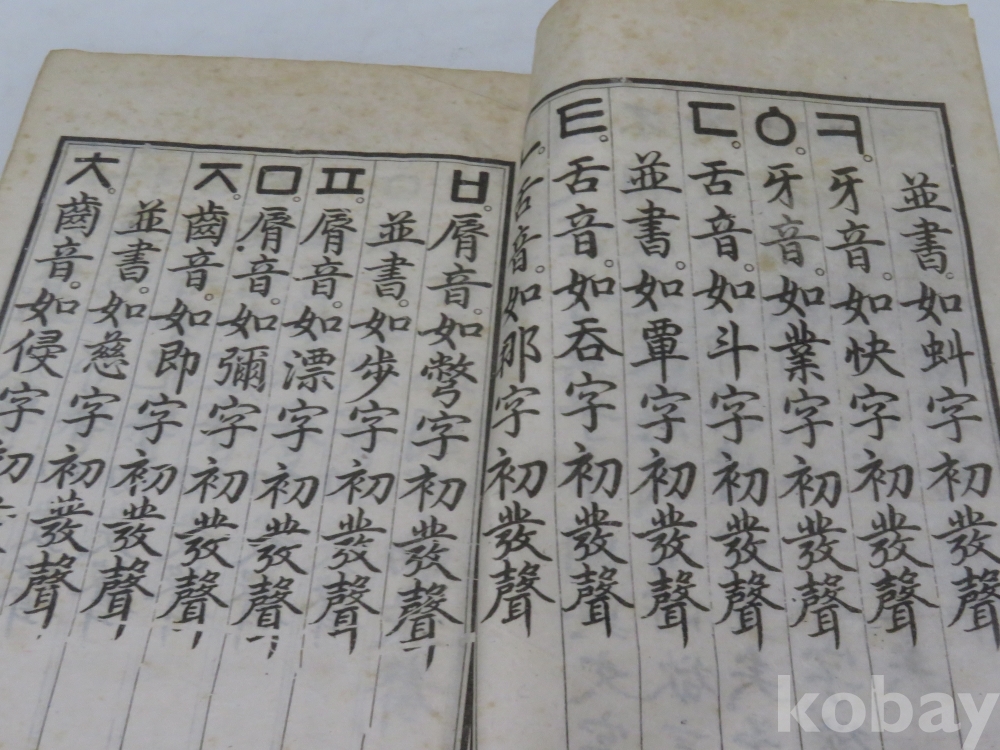 並書。如虯字初發聲
ㅋ。牙音。如快字初發聲
ㆁ。牙音。如業字初發聲
ㄷ。舌音。如斗字初發聲
並書。如覃字初發聲
ㅌ。舌音。如呑字初發聲
ㄴ。舌音。如那字初發聲
ㅂ。脣音。如彆字初發聲
並書。如步字初發聲
ㅍ。脣音。如漂字初發聲
ㅁ。脣音。如彌字初發聲
ㅈ。齒音。如即字初發聲
並書。如慈字初發聲
ㅊ。齒音。如侵字初
kobay